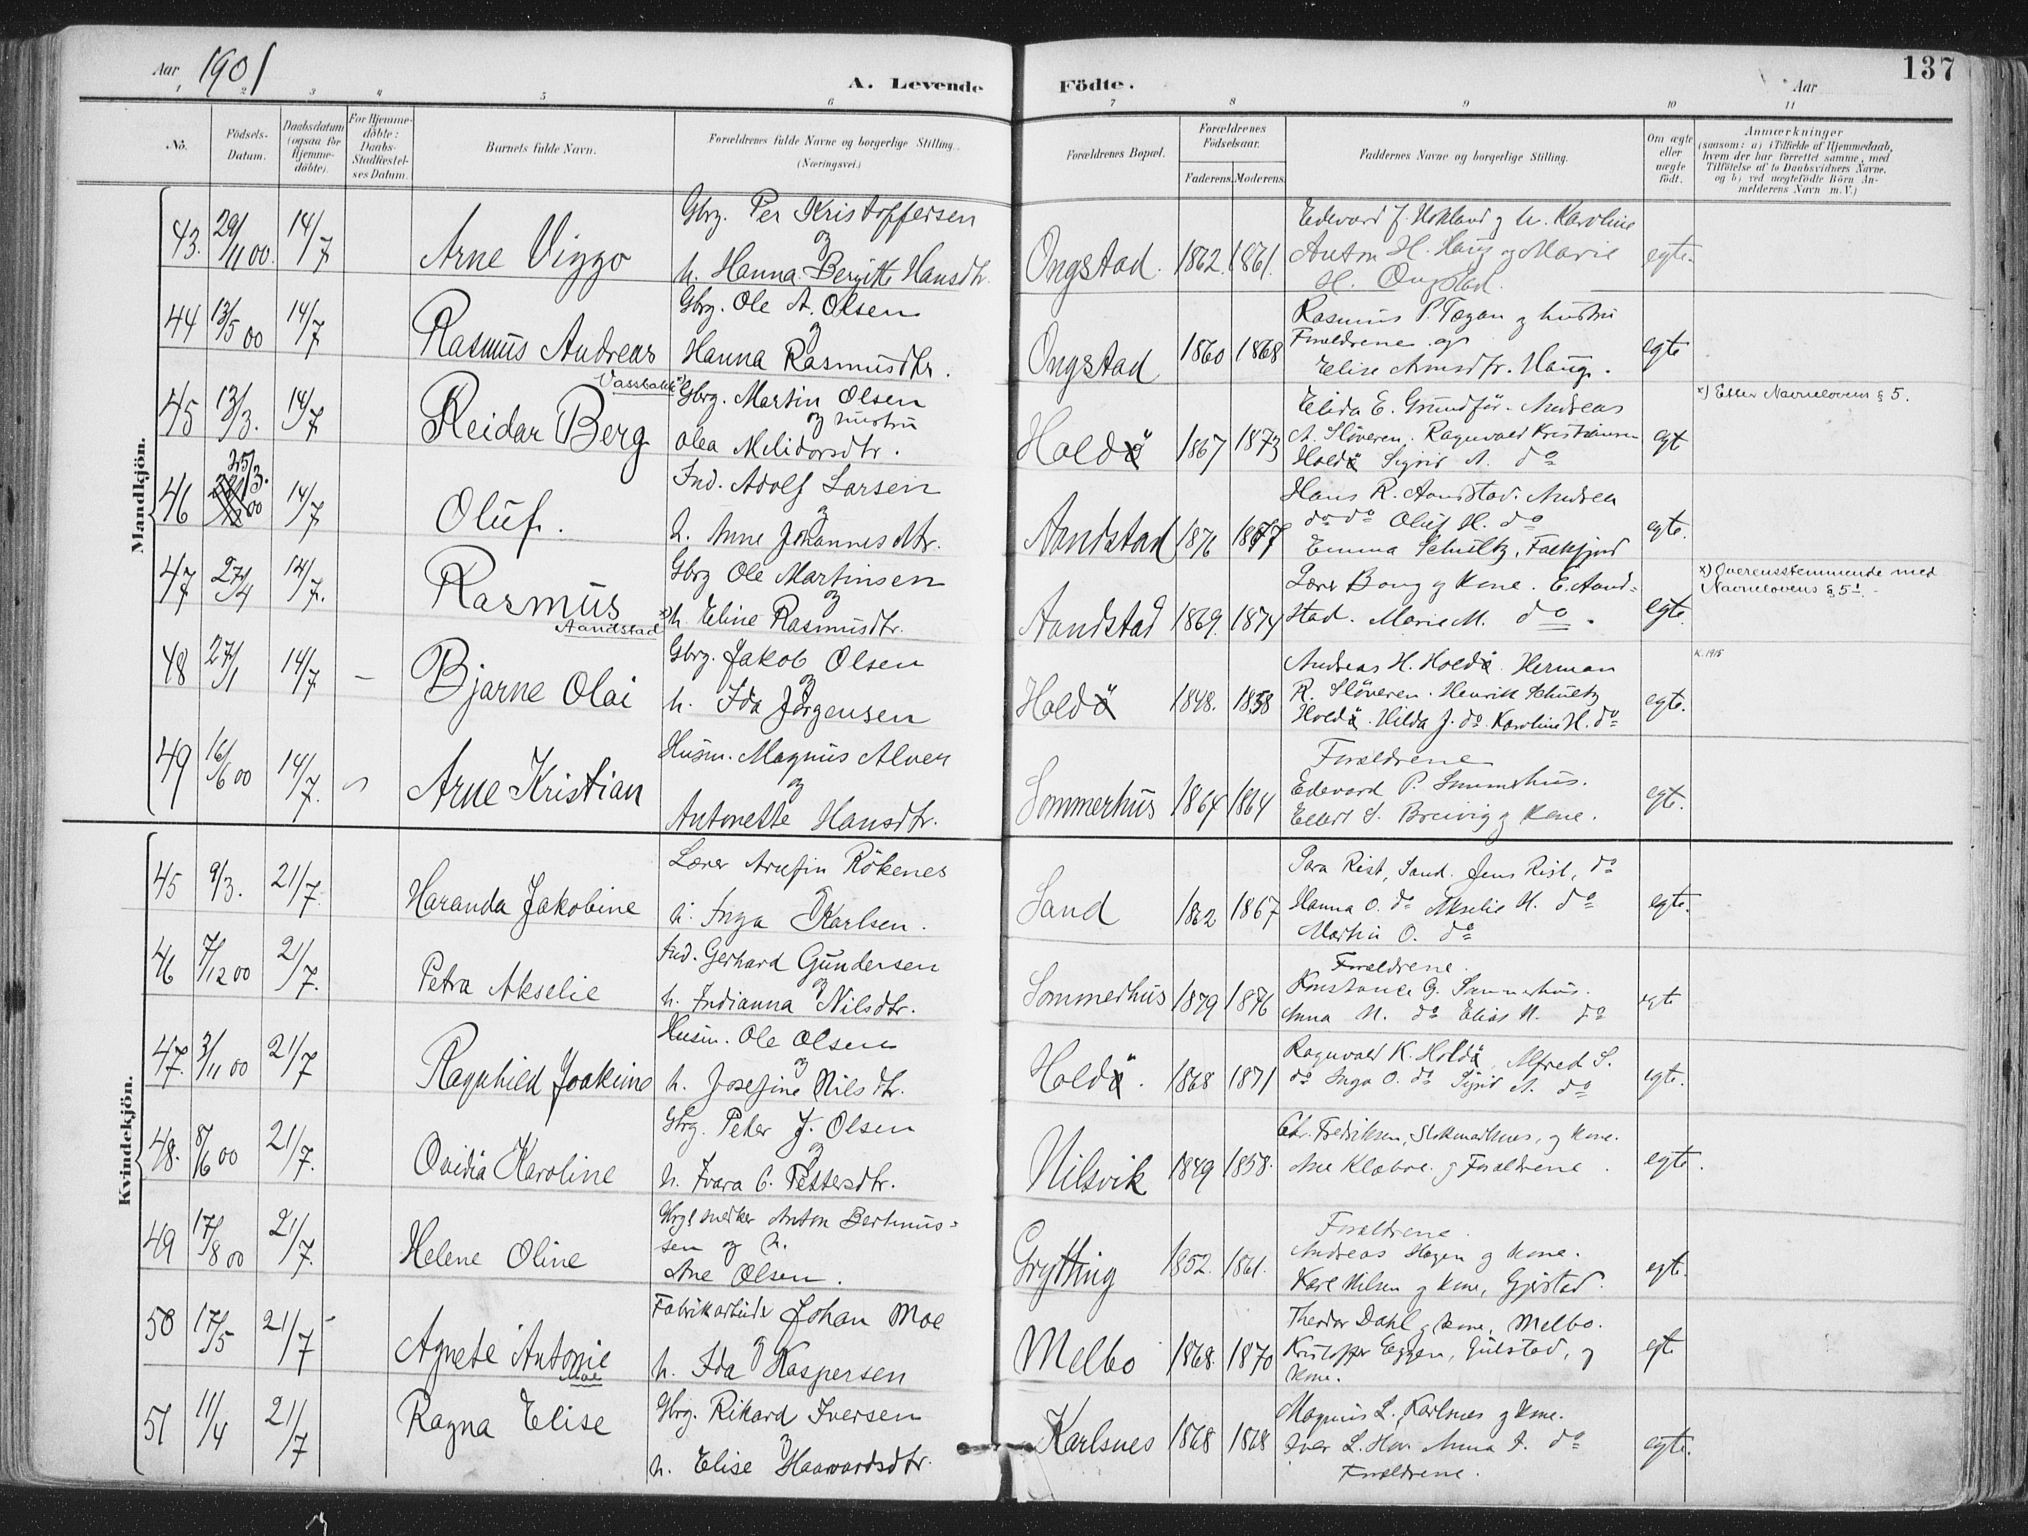 Aar 1901
A. Levende Födte.
Aar
137
1 2 3 4 5 6 7 8 9 10 11
No.
Födsels-Datum.
Daabsdatum (ogsaa for Hjemme-döbte).
For Hjemme-döbte: Daabs-Stadfæstel-ses Datum.
Barnets fulde Navn.
Forældrenes fulde Navne og borgerlige Stilling. (Næringsvei.)
Forældrenes Bopæl.
Forældrenes Födselsaar.
Faderens. Moderens.
Faddernes Navne og borgerlige Stilling.
Om ægte eller uægte födt.
Anmærkninger
(saasom: a) i Tilfælde af Hjemmedaab, hvem der har forrettet samme, med Tilföielse af to Daabsvidners Navne, og b) ved uægtefödte Börn An-melderens Navn m. V.)
Mandkjön.
43. 29/11 00. 14/7 Arne Viggo
Gbrg. Per Kristoffersen
og
h. Hanna Bergitte Hansdtr.
Ongstad. 1862. 1861.
Edevard J. Hokland og h. Karoline
Anton H. Haug og Marie
H. Ongstad.
egte.
44 13/5 00 14/7 Rasmus Andreas
Gbrg. Ole A. Olsen
og
Hanna Rasmusdtr.
Ongstad 1860 1868
Rasmus P. Tægan og hustru
Forældrene og
Elise Arnsdtr. Haug.
egte
45 13/3. 14/7 Reidar Berg
Vassbakk x)
Gbrg. Martin Olsen
og hustru
Olea Melidorsdtr.
Holdö 1867 1873
Elida E. Grundför. Andreas
A. Slöveren. Ragnvald Kristiansen
Holdö Sigrid A. do
egt
x) Efter Navnelovens § 5.
46 25/3. 00 14/7 Oluf.
Ind. Adolf Larsen
og
h. Anne Johannesdtr.
Aandstad 1876 1877
Hans R. Aandstad. Andrea
do do Oluf H. do
Emma Schultz, Falkfjord
egte.
47 27/4 14/7. Rasmus
Aandstad x)
Gbrg Ole Martinsen
og
h. Eline Rasmusdtr.
Aandstad 1869. 1874
Lærer Bong og Kone. E. Aand-
stad. Marie M. do.
egte.
x) Overensstemmende med
Navnelovens § 5!
48 27/1 14/7 - Bjarne Olai
Gbrg. Jakob Olsen
og
h. Ida Jörgensen
Holdö 1848. 1858
Andreas H. Holdö. Herman
R. Slöveren. Henrik Schultz
Holdö. Hilda J. do. Karoline H. do.
egte.
K. 1915
49 16/6 00 14/7. Arne Kristian
Husm. Magnus Alver
og
Antonette Hansdtr.
Sommerhus 1864 1864
Forældrene
Edevard P. Sommerhus.
Ellert S. Breivig og Kone.
egte.
Kvindekjön.
45 9/3. 21/7. Haranda Jakobine
Lærer Arnfin Rökenes
og
h. Inga Karlsen.
Sand 1862 1867
Sara Rist, Sand. Jens Rist, do
Hanna O. do Akselie H. do
Martin O. do
egte.
46 7/12 00 21/7. Petra Akselie
Ind. Gerhard Gundersen
og
h. Indianna Nilsdtr.
Sommerhus 1879 1876
Forældrene.
Konstance G. Sommerhus.
Anna N. do Elias N. do
egte
47. 3/11 00 21/7 Ragnhild Joakime
Husm. Ole Olsen
og
h. Josefine Nilsdtr.
Holdö. 1868 1871
Ragnvald K. Holdö, Alfred S.
do Inga O. do Sigrid A. do
egte.
48. 8/6 00 21/7. Ovidia Karoline
Gbrg. Peter J. Olsen
og
h. Ivara C. Pettersdtr.
Nilsvik 1849 1858.
Chr. Fredriksen, Stokmarknes, og Kone.
Ane Klæboe og Forældrene.
egte.
49 17/8 00 21/7. Helene Oline
Gbrg snedker Anton Bertinus-
sen og h.
Ane Olsen.
Grytting 1852. 1861.
Forældrene.
Andreas Hagen og Kone.
Karl Nilsen og Kone, Gjerstad.
egte.
50 17/5 21/7 Agnete Antonie
Moe
Fabrikarbeider Johan Moe
og
h. Ida Kaspersen
Melbo 1868. 1870
Theodor Dahl og Kone, Melbo.
Kristoffer Eggen, Gulstad, og
Kone.
egte
51 11/4 21/7 Ragna Elise
Gbrg. Rikard Iversen
og
h. Elise Haavardsdtr.
Karlsnes 1868 1868
Magnus L. Karlsnes og Kone.
Iver L. Hov Anna I. do
Forældrene.
egte.